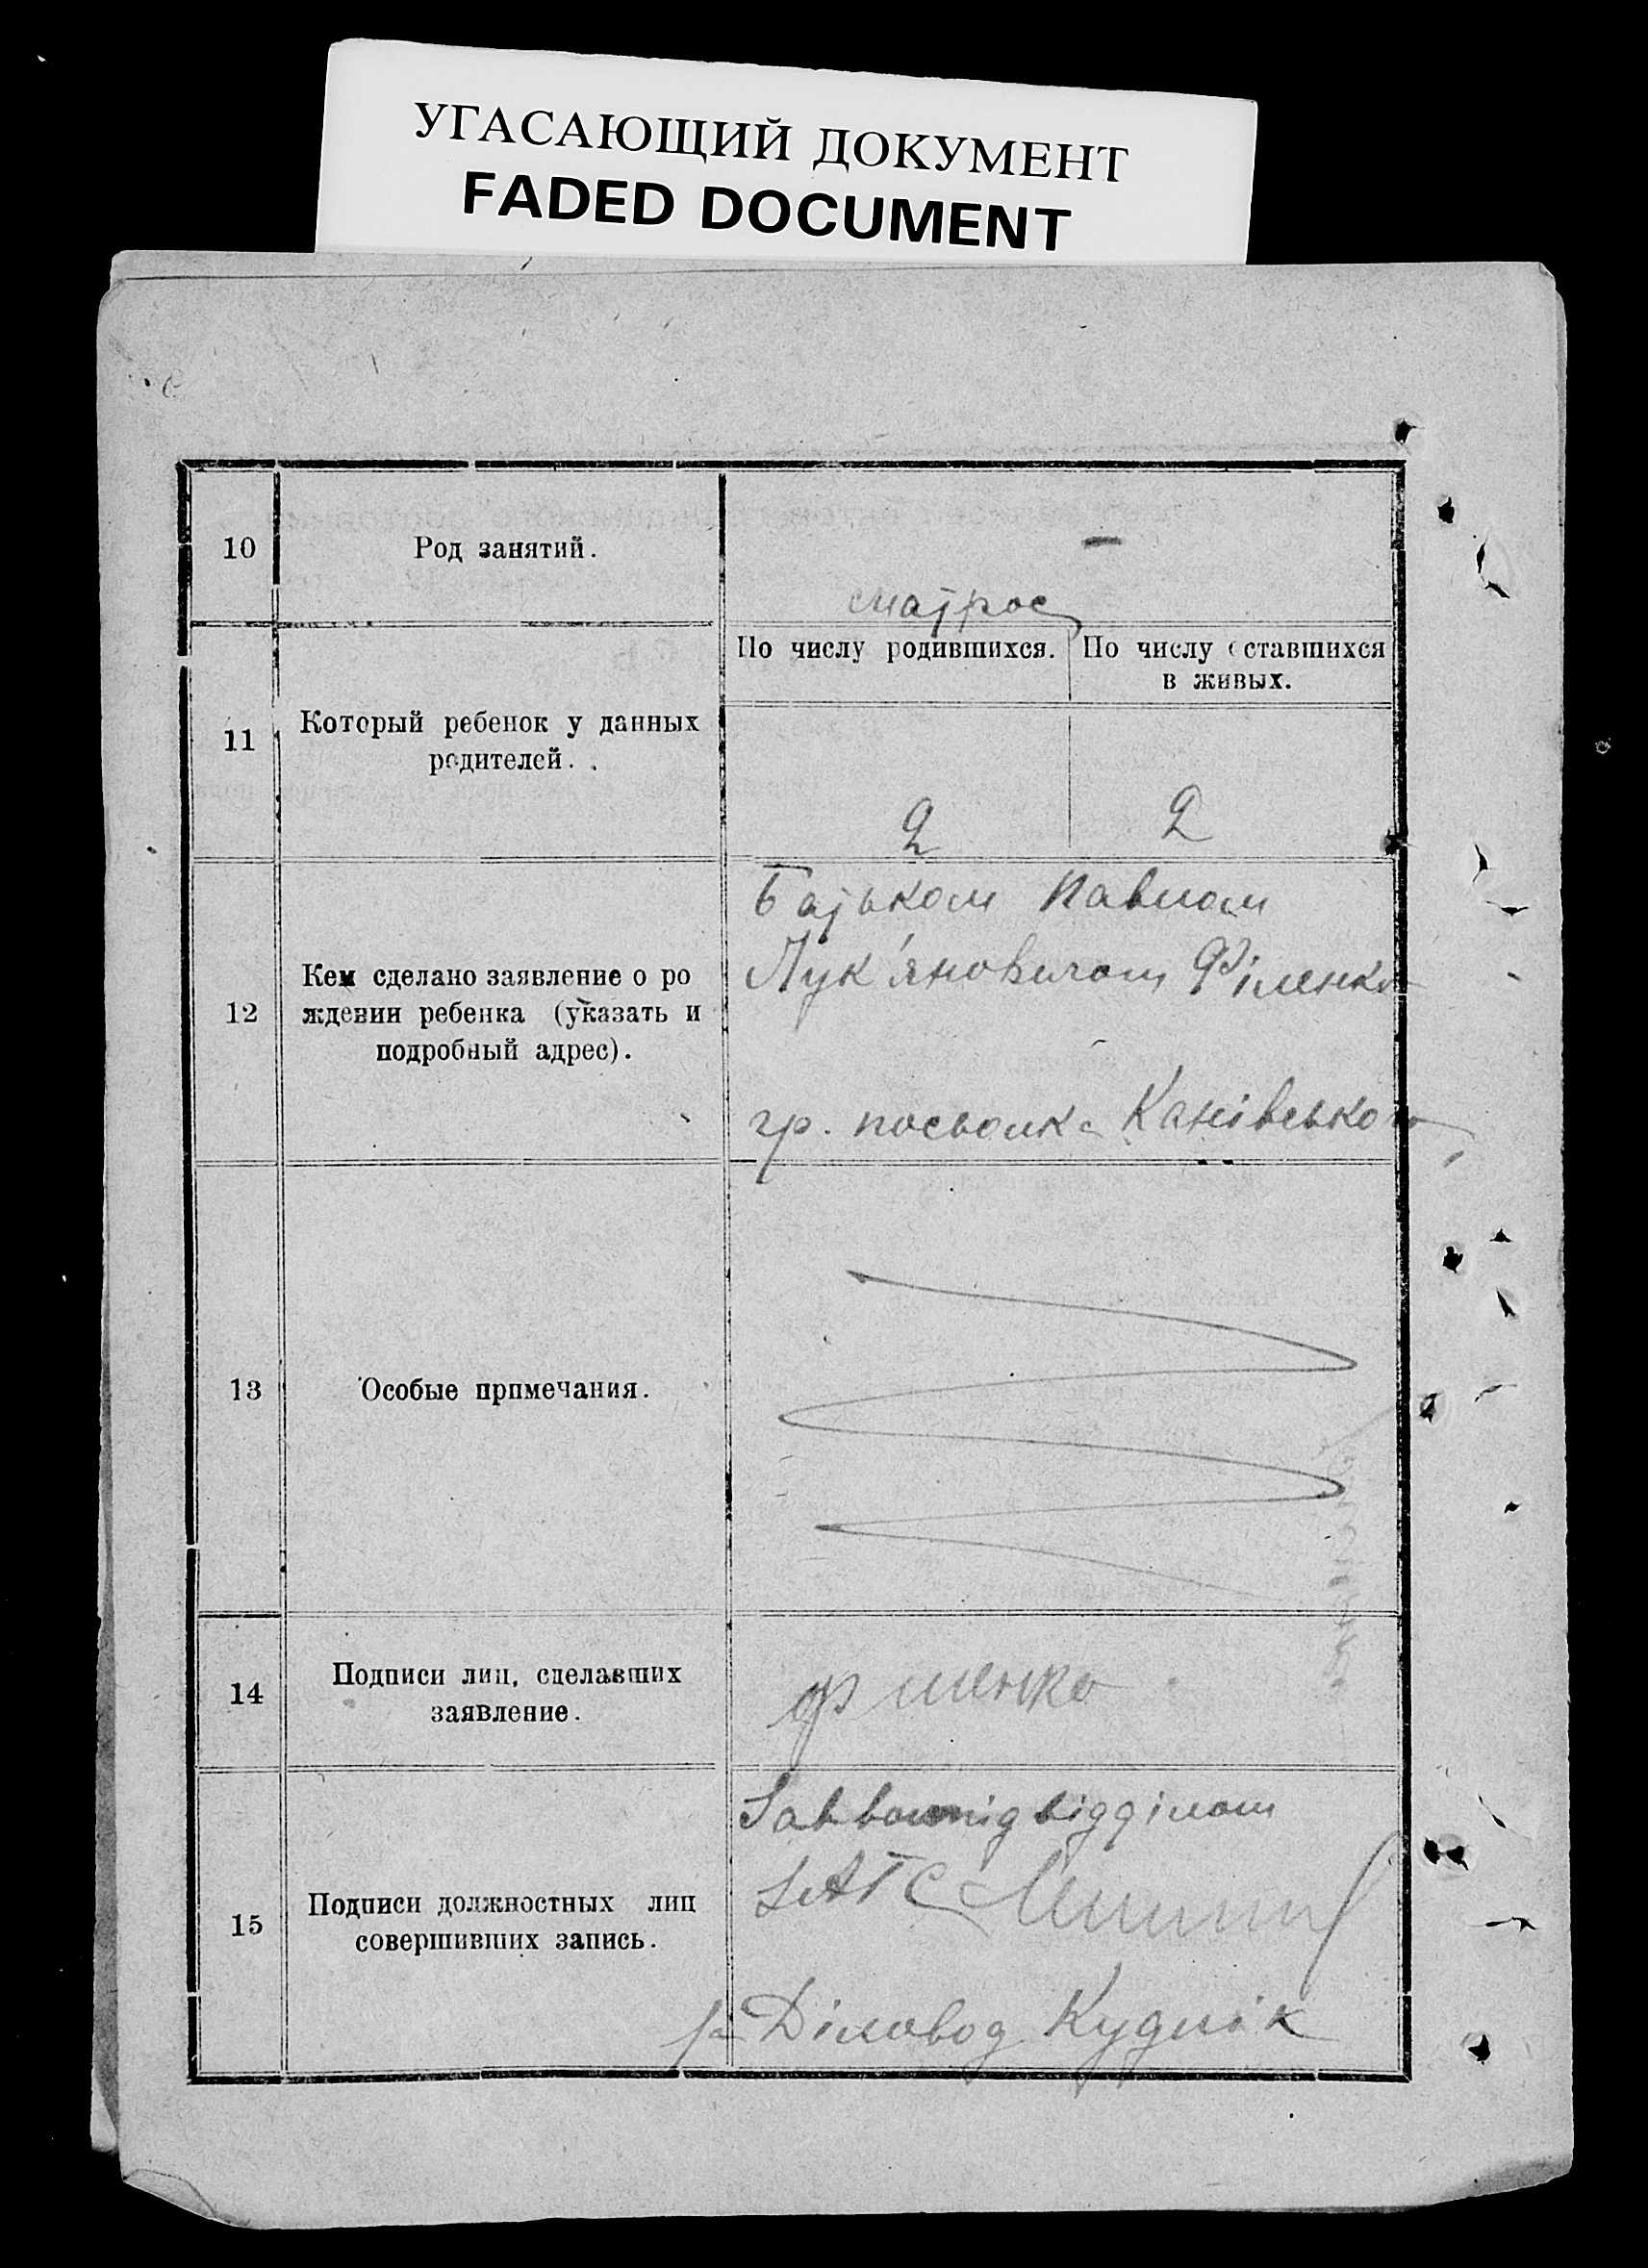 УГАСАЮЩИЙ ДОКУМЕНТ
FADED DOCUMENT
10
Род занятий.
—
матрос
11
Который ребенок у данных
родителей.
По числу родившихся.
По числу оставшихся
в живых.
2
2
12
Кем сделано заявление о ро
ждении ребенка (указать и
подробный адрес).
Батьком Павлом
Лук'яновичом Філенко
гр. посьолка Канівсько
13
Особые примечания.
14
Подписи лиц, сделавших
заявление.
Філенко
15
Подписи должностных лиц
совершивших запись.
Завідділом
ЗАГС
Діловод Кудлік